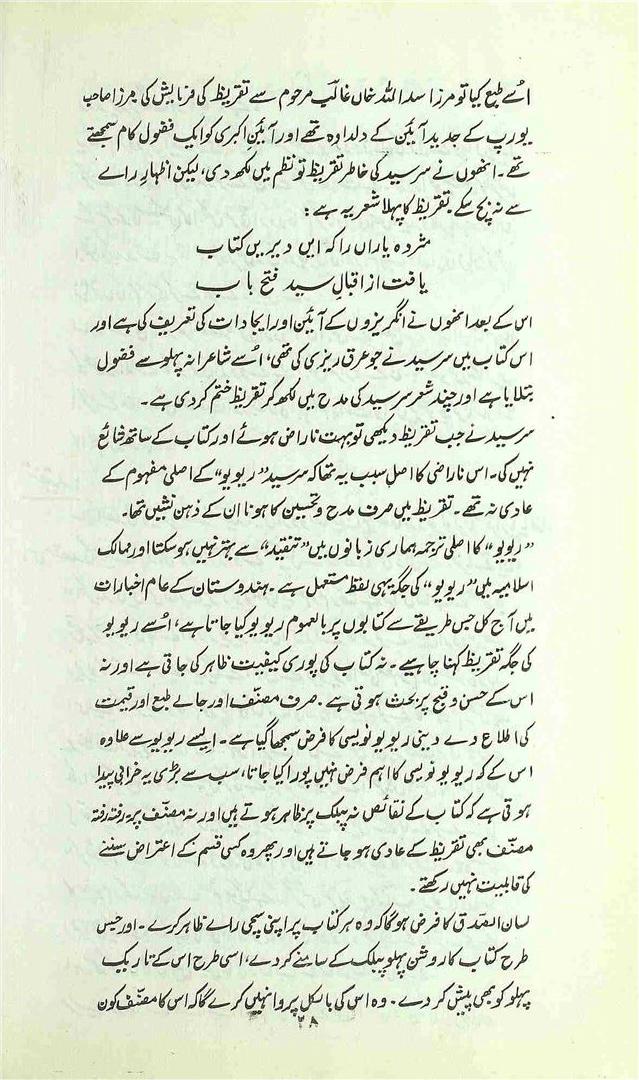 اُسے طبع کیا تو مرزا اسد اللہ خاں غالبؔ مرحوم سے تقریظ کی فرمایش کی مرزا صاحب
یورپ کے جدید آئین کے دلدادہ تھے اور آئینِ اکبری کو ایک فضول کام سمجھتے
تھے۔ انھوں نے سرسید کی خاطر تقریظ تو نظم میں لکھ دی، لیکن اظہارِ راے
سے نہ بچ سکے تقریظ کا پہلا شعر یہ ہے :
مژدہ یاراں را کہ ایں دیریں کتاب
یافت از اقبالِ سید فتح باب
اس کے بعد انھوں نے انگریزوں کے آئین اور ایجادات کی تعریف کی ہے اور
اس کتاب میں سرسید نے جو عرق ریزی کی تھی، اُسے شاعرانہ پہلو سے فضول
بتلایا ہے اور چند شعر سرسید کی مدح میں لکھ کر تقریظ ختم کر دی ہے۔
سرسید نے جب تقریظ دیکھی تو بہت ناراض ہوئے اور کتاب کے ساتھ شائع
نہیں کی۔ اس ناراضی کا اصل سبب یہ تھا کہ سرسید ”ریویو“ کے اصلی مفہوم کے
عادی نہ تھے۔ تقریظ میں صرف مدح و تحسین کا ہونا ان کے ذہن نشیں تھا۔
”ریویو“ کا اصلی ترجمہ ہماری زبانوں میں ”تنقید“ سے بہتر نہیں ہو سکتا اور ممالک
اسلامیہ میں ”ریویو“ کی جگہ یہی لفظ مستعمل ہے۔ ہندوستان کے عام اخبارات
میں آج کل جس طریقے سے کتابوں پر بالعموم ریویو کیا جاتا ہے، اُسے ریویو
کی جگہ تقریظ کہنا چاہیے۔ نہ کتاب کی پوری کیفیت ظاہر کی جاتی ہے اور نہ
اس کے حسن و قبح پر بحث ہوتی ہے۔ صرف مصنّف اور جاے طبع اور قیمت
کی اطلاع دے دینی ریویو نویسی کا فرض سمجھا گیا ہے۔ ایسے ریویو سے علاوہ
اس کے کہ ریویو نویسی کا اہم فرض نہیں پورا کیا جاتا، سب سے بڑی یہ خرابی پیدا
ہوتی ہے کہ کتاب کے نقائص نہ پبلک پر ظاہر ہوتے ہیں اور نہ مصنّف پر۔ رفتہ رفتہ
مصنّف بھی تقریظ کے عادی ہو جاتے ہیں اور پھر وہ کسی قسم کے اعتراض سننے
کی قابلیت نہیں رکھتے۔
لسان الصّدق کا فرض ہوگا کہ وہ ہر کتاب پر اپنی سچی راے ظاہر کرے۔ اور جس
طرح کتاب کا روشن پہلو پبلک کے سامنے کر دے، اسی طرح اس کے تاریک
پہلو کو بھی پیش کر دے۔ وہ اس کی بالکل پروا نہیں کرے گا کہ اس کا مصنّف کون
۲۸